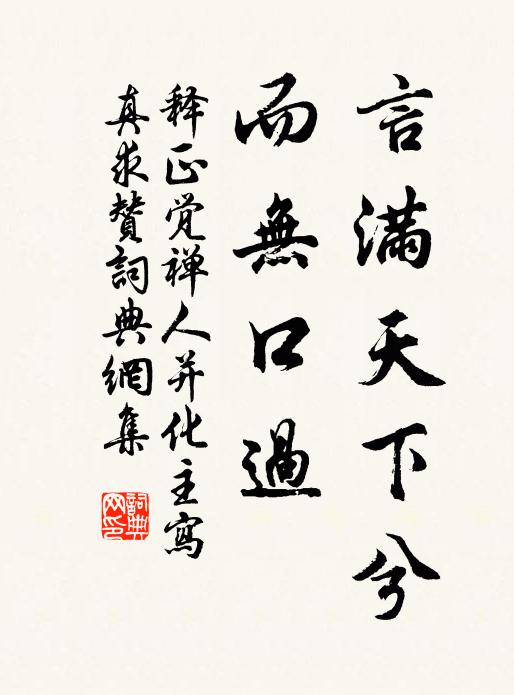 言满天下兮
而無口過
释正觉禅人并化主寫
真求贊詞典網集
詞典网印